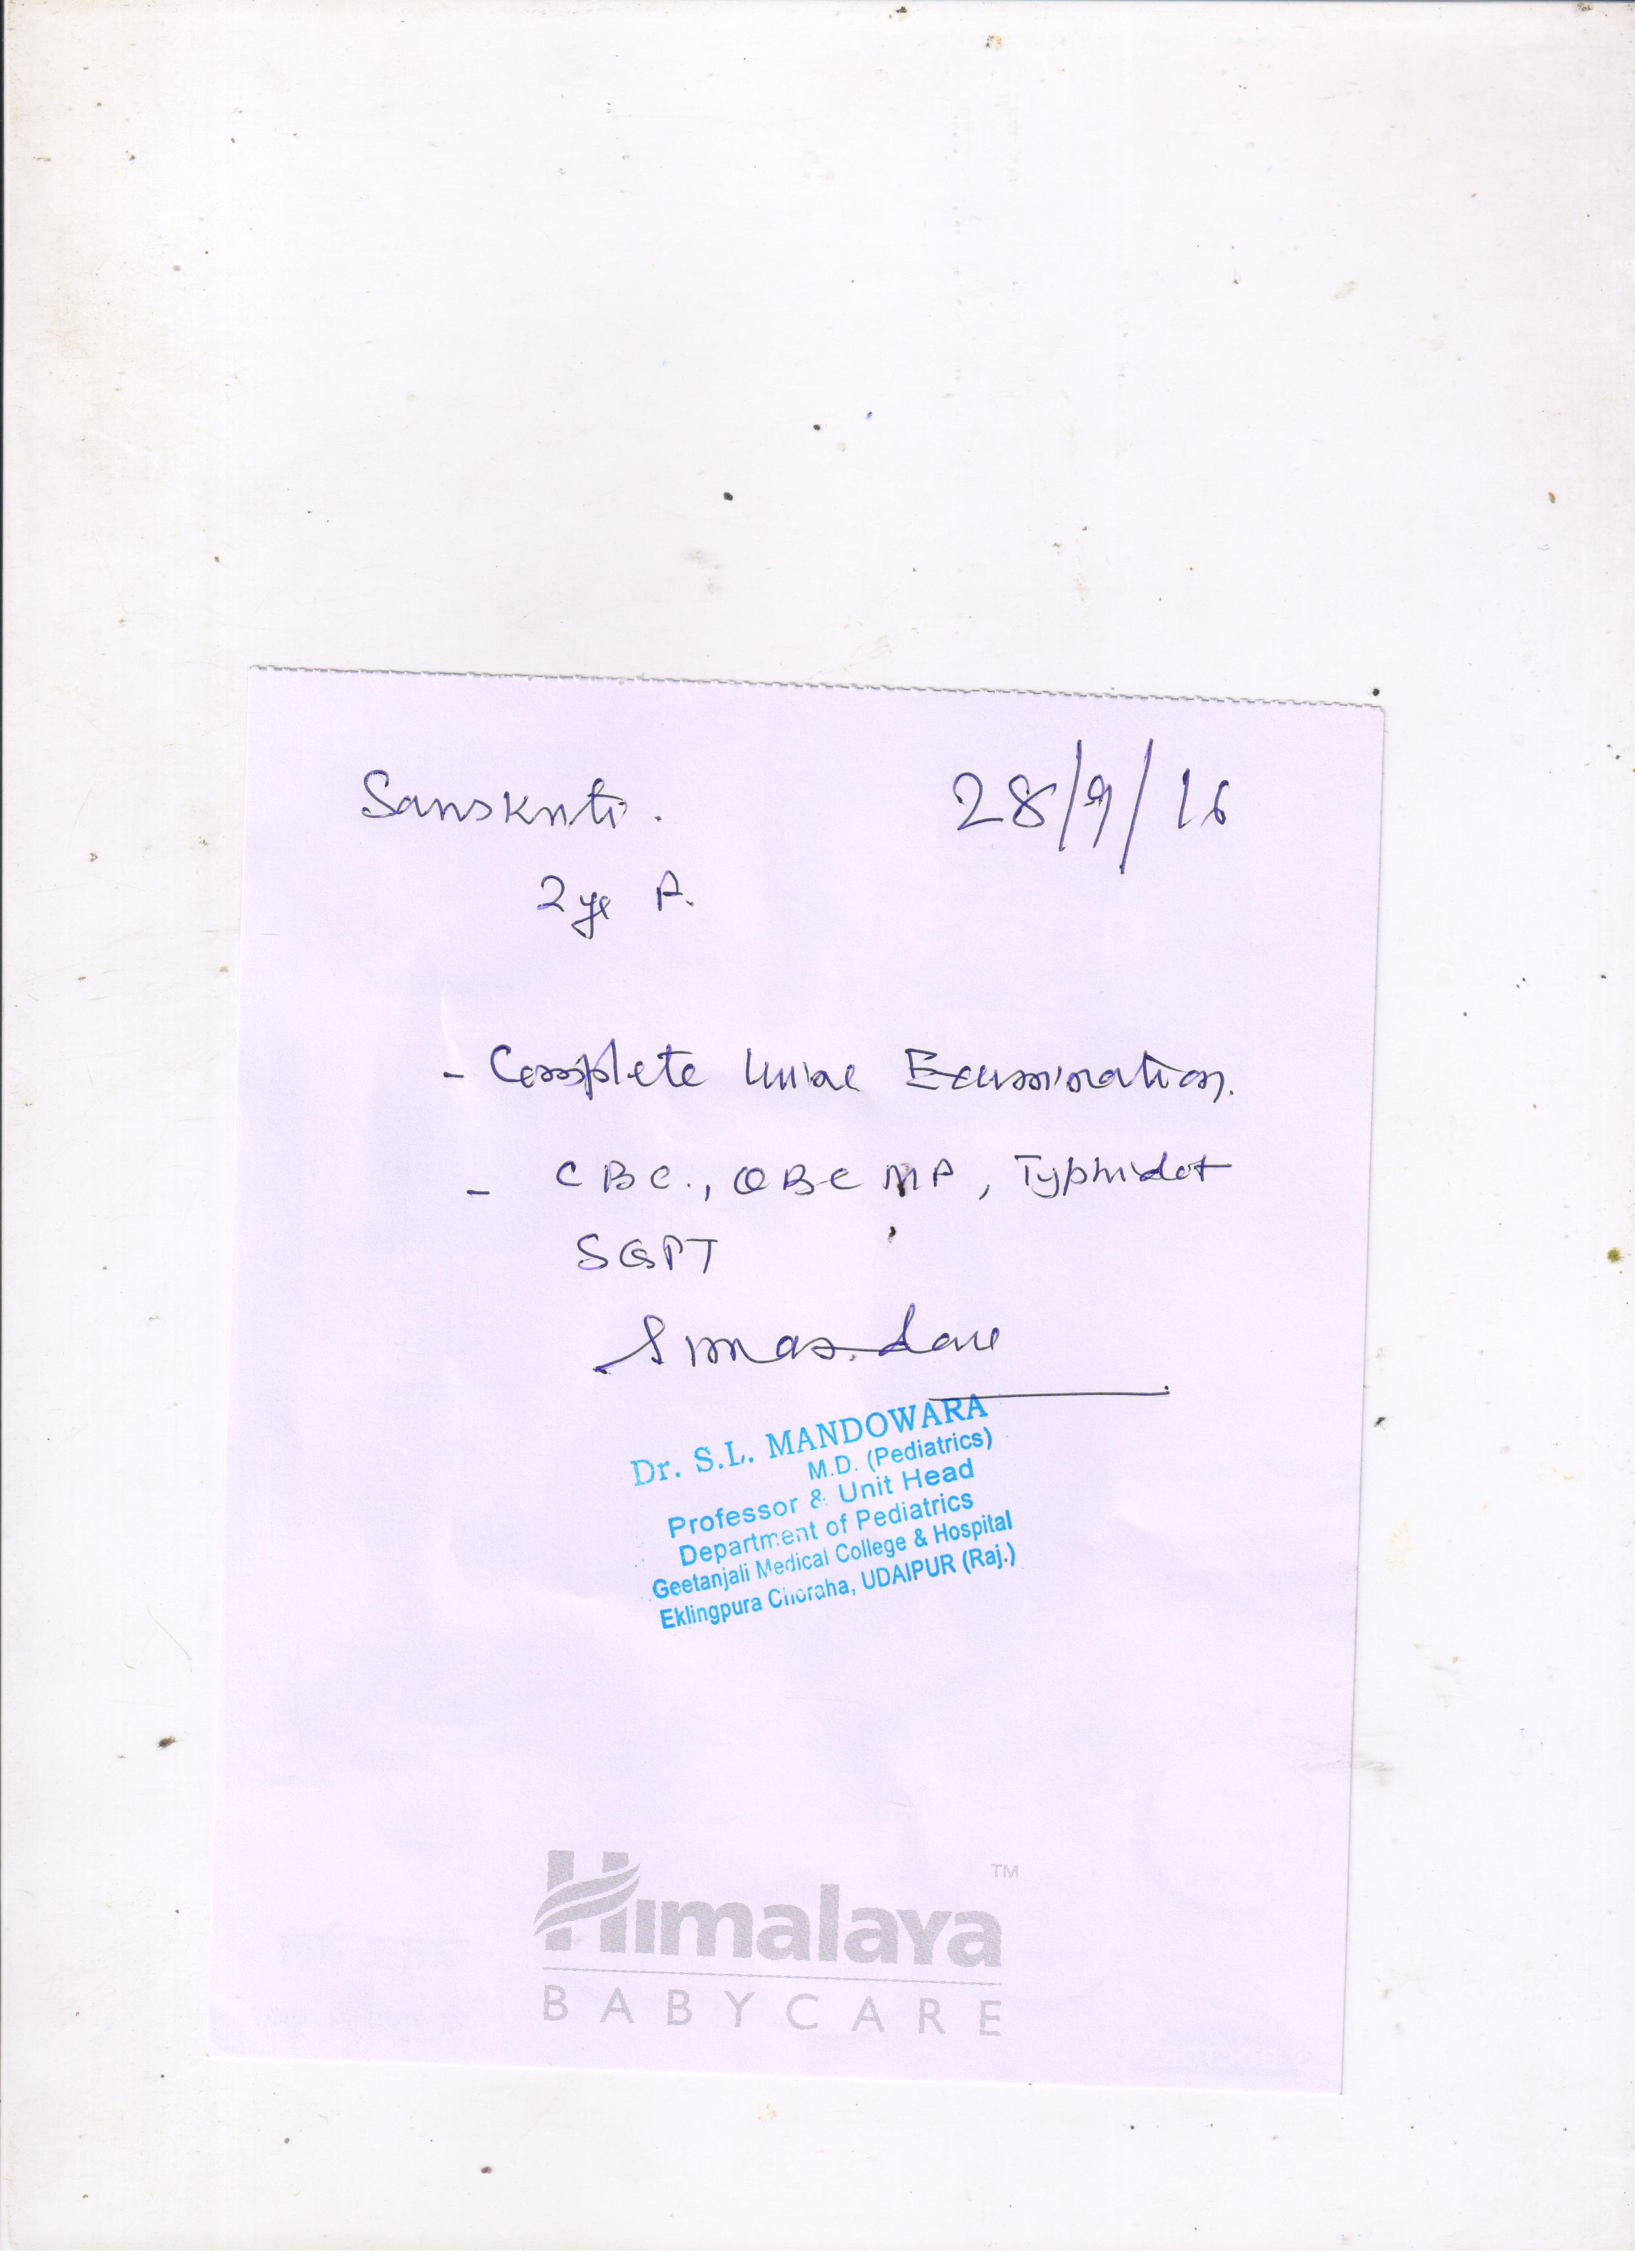 Sanskriti. 28/9/16
2 yr F.
- Complete Urine Examination.
- CBC., QBC MP, Typhidot
SGPT
Dr. S.L. MANDOWARA
M.D. (Pediatrics)
Professor & Unit Head
Department of Pediatrics
Geetanjali Medical College & Hospital
Eklingpura Choraha, UDAIPUR (Raj.)
Himalaya TM
BABYCARE